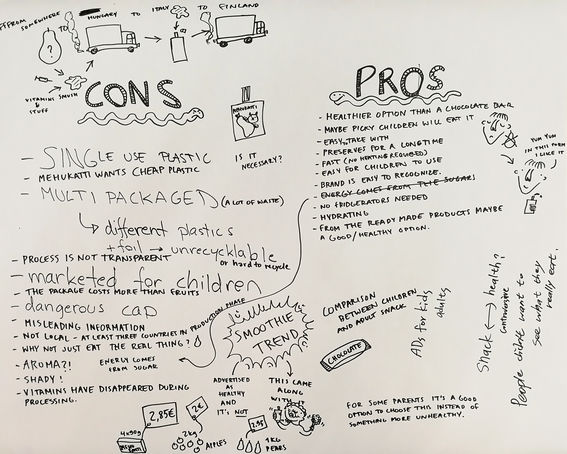 FROM SOMEWHERE TO HUNGARY TO ITALY TO FINLAND
?
VITAMINS SMUSH
STUFF
CONS
MEHUKATTI
IS IT
NECESSARY?
- SINGLE USE PLASTIC
- MEHUKATTI WANTS CHEAP PLASTIC
- MULTI PACKAGED (A LOT OF WASTE)
different plastics
+ foil → unrecycklable
or hard to recycle
- PROCESS IS NOT TRANSPARENT
- marketed for children
- THE PACKAGE COSTS MORE THAN FRUITS
- dangerous cap
- MISLEADING INFORMATION
- NOT LOCAL - AT LEAST THREE COUNTRIES IN PRODUCTION PHASE
- WHY NOT JUST EAT THE REAL THING?
- AROMA?!
ENERGY COMES
FROM SUGAR
- SHADY!
- VITAMINS HAVE DISAPPEARED DURING
PROCESSING.
PROS
- HEALTHIER OPTION THAN A CHOCOLATE BAR
- MAYBE PICKY CHILDREN WILL EAT IT
- EASY TAKE WITH
- PRESERVES FOR A LONGTIME
- FAST (NO HEATING REQUIRED)
- EASY FOR CHILDREN TO USE
- BRAND IS EASY TO RECOGNIZE.
- ENERGY COMES FROM THE SUGAR
- NO FRIDGERATORS NEEDED
- HYDRATING
- FROM THE READY MADE PRODUCTS MAYBE
A GOOD/HEALTHY OPTION.
YUM YUM
IN THIS FORM
I LIKE IT
SMOOTHIE
TREND
COMPARISON
BETWEEN CHILDREN
AND ADULT SNACK
CHOCOLATE
ADs for kids
adults
Snack ↔ health?
People didn't want to
see what they
really eat.
ADVERTISED
AS
HEALTHY
AND
IT'S NOT
THIS CAME
ALONG
WITH IT
2,85€
4x90g
2€
2kg
APPLES
1KG
PEARS
FOR SOME PARENTS IT'S A GOOD
OPTION TO CHOOSE THIS INSTEAD OF
SOMETHING MORE UNHEALTHY.